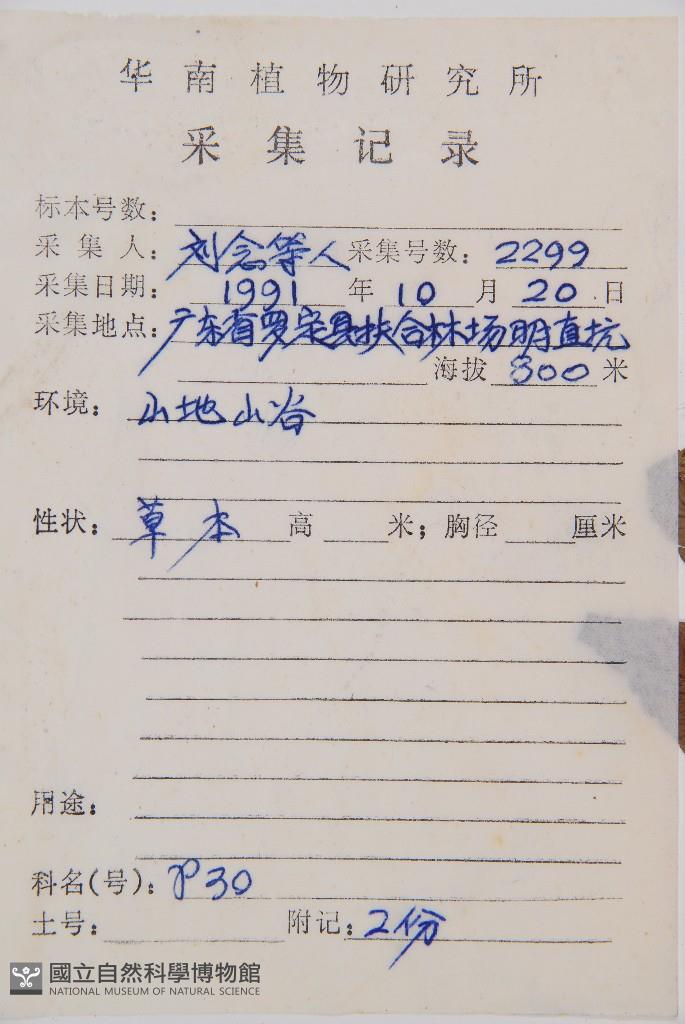 华南植物研究所
采集记录
标本号数：
采集人：刘念等人 采集号数：2299
采集日期：1991年10月20日
采集地点：广东省罗定县扶合林场明直坑
海拔 800 米
环境：山地山谷
性状：草本 高 米；胸径 厘米
用途：
科名(号)：P30
土号： 附记：2份
國立自然科學博物館
NATIONAL MUSEUM OF NATURAL SCIENCE